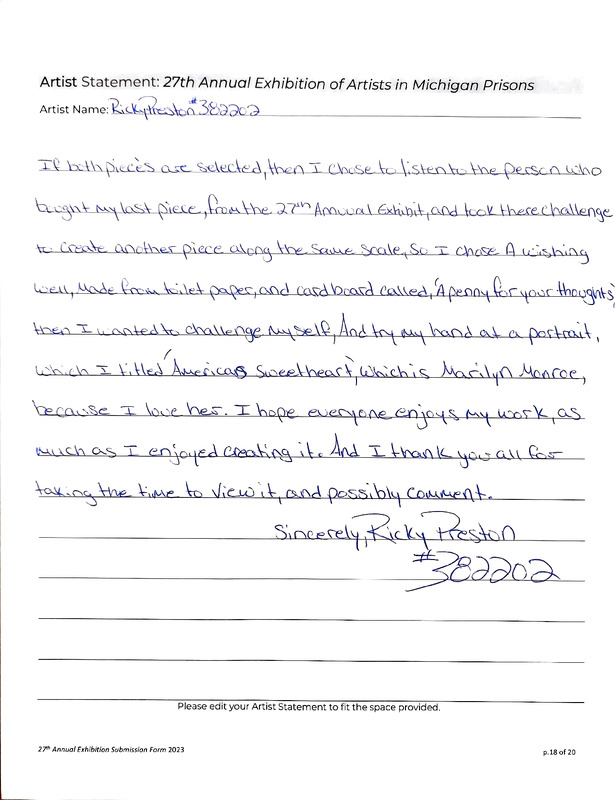 Artist Statement: 27th Annual Exhibition of Artists in Michigan Prisons
Artist Name: Ricky Preston #382202
If both pieces are selected, then I chose to listen to the person who
bought my last piece, from the 27th Annual Exhibit, and took there challenge
to create another piece along the same scale, So I chose A wishing
well, Made from toilet paper, and cardboard called, 'A penny for your thoughts'
then I wanted to challenge myself, And try my hand at a portrait,
which I titled 'Americas Sweetheart', which is Marilyn Monroe,
because I love her. I hope everyone enjoys my work, as
much as I enjoyed creating it. And I thank you all for
taking the time to view it, and possibly comment.
Sincerely, Ricky Preston
#382202
Please edit your Artist Statement to fit the space provided.
27th Annual Exhibition Submission Form 2023
p.18 of 20